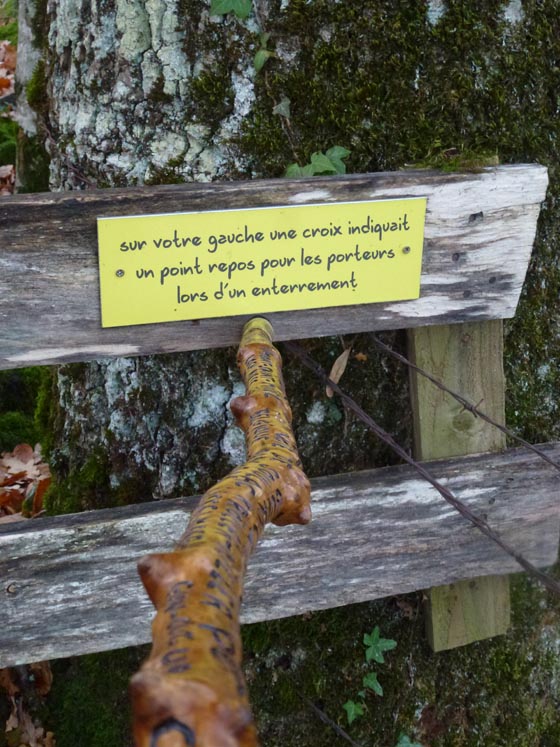 sur votre gauche une croix indiquait
un point repos pour les porteurs
lors d'un enterrement